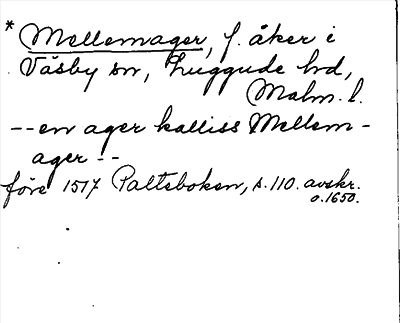 * Mellemager, f. åker i
Väsby sn, Luggude hd,
Malm. l.
-- en ager kalliss Mellem-
ager --
före 1517 Paltsboken, s. 110. avskr.
o. 1650.